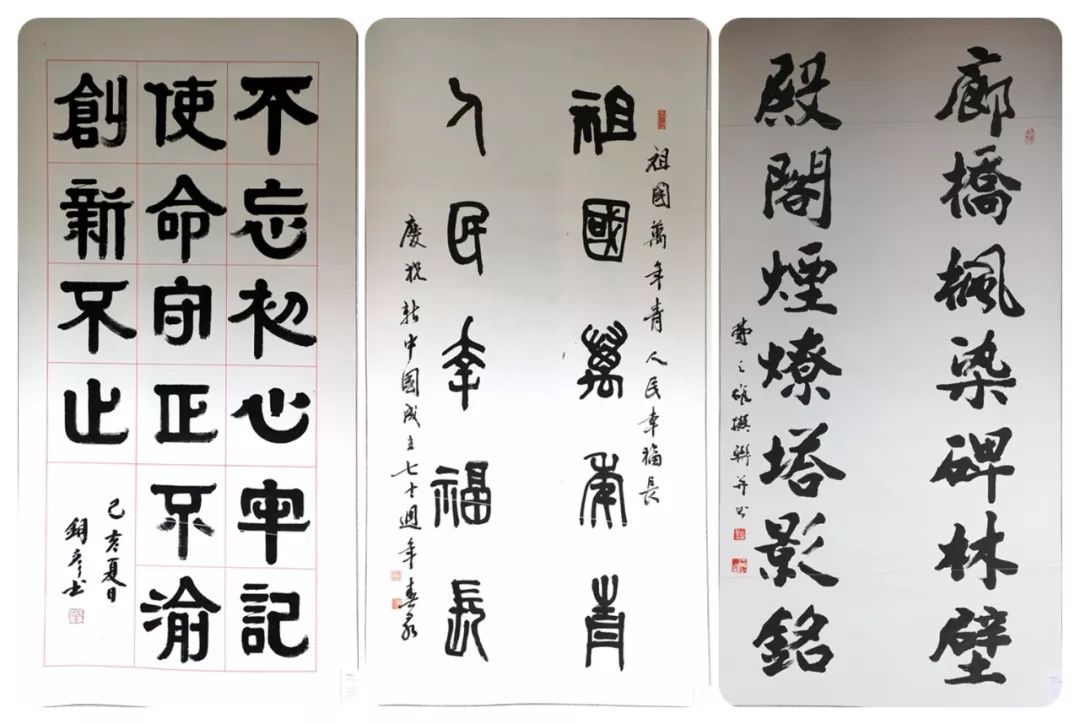 不忘初心牢記
使命守正不渝
創新不止
己亥夏日
祖國萬年青人民幸福長
祖國萬年青
人民幸福長
慶祝新中國成立七十週年
廊橋楓染碑林壁
殿閣煙燎塔影銘
之雄撰聯并书